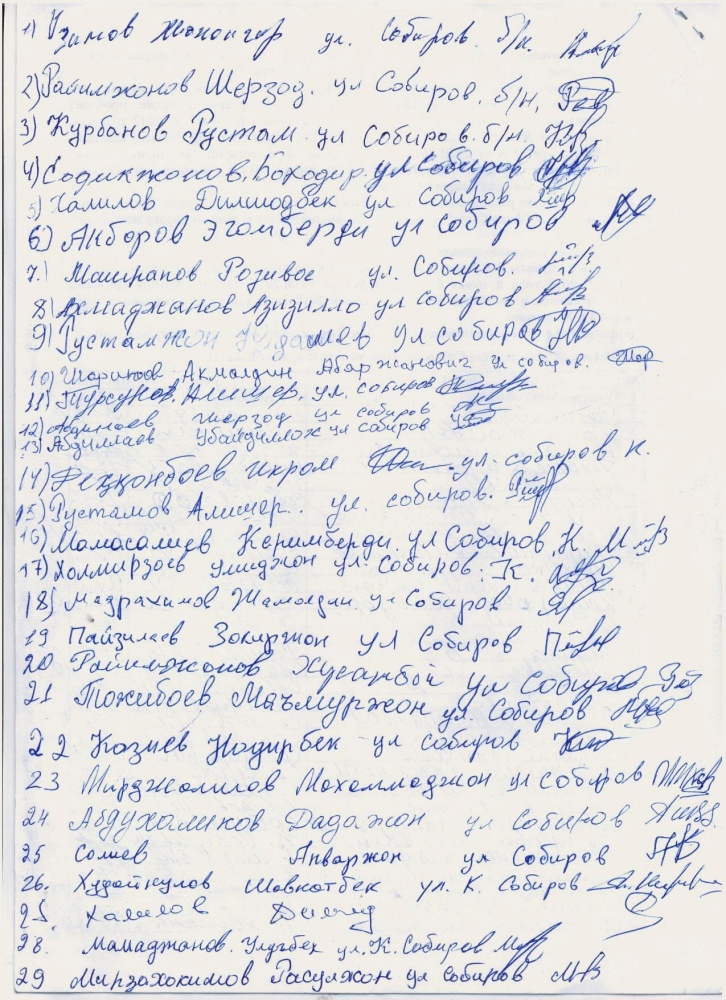 1) Азимов Жахонгир ул. Собиров. б/н.
2) Рахимжонов Шерзод. ул Собиров. б/н.
3) Курбанов Рустам. ул Собиров. б/н.
4) Содикжонов. Боходир. ул Собиров
5) Халилов Дилшодбек ул Собиров
6) Акборов Эгомберди ул собиров
7.) Машрапов Розивое ул. Собиров.
8) Ахмаджанов Азизилло ул собиров
9) Рустамжон ул собиров
10) Шарипов Акмалдин Абаржанович ул собиров.
11) Турсунов. Алишер. ул. собиров
12) Шерзод ул собиров
13) Абдиллаев Убайдиллох ул собиров
14) Икром ул. собиров к.
15) Рустамов Алишер. ул. собиров.
16) Мамасалиев Керимберди. ул Собиров. К.
17) Холмирзаев Умиджон ул. Собиров. К.
18) Мадрахимов Жамолдин ул Собиров
19 Пайзилаев Зокиржон ул Собиров
20 Райимжонов Хусанбой ул Собиров
21 Тожибоев Маъмуржон ул. Собиров
22 Козиев Нодирбек ул собиров
23 Мирджалилов Мохаммаджон ул собиров
24 Абдухаликов Дадажон ул Собиров
25 Солиев Анваржон ул Собиров
26. Худойкулов Шавкотбек ул. К. Собиров
Халилов
28. Мамаджанов. Улугбек ул. К. Собиров
29 Мирзахокимов Расулжон ул собиров